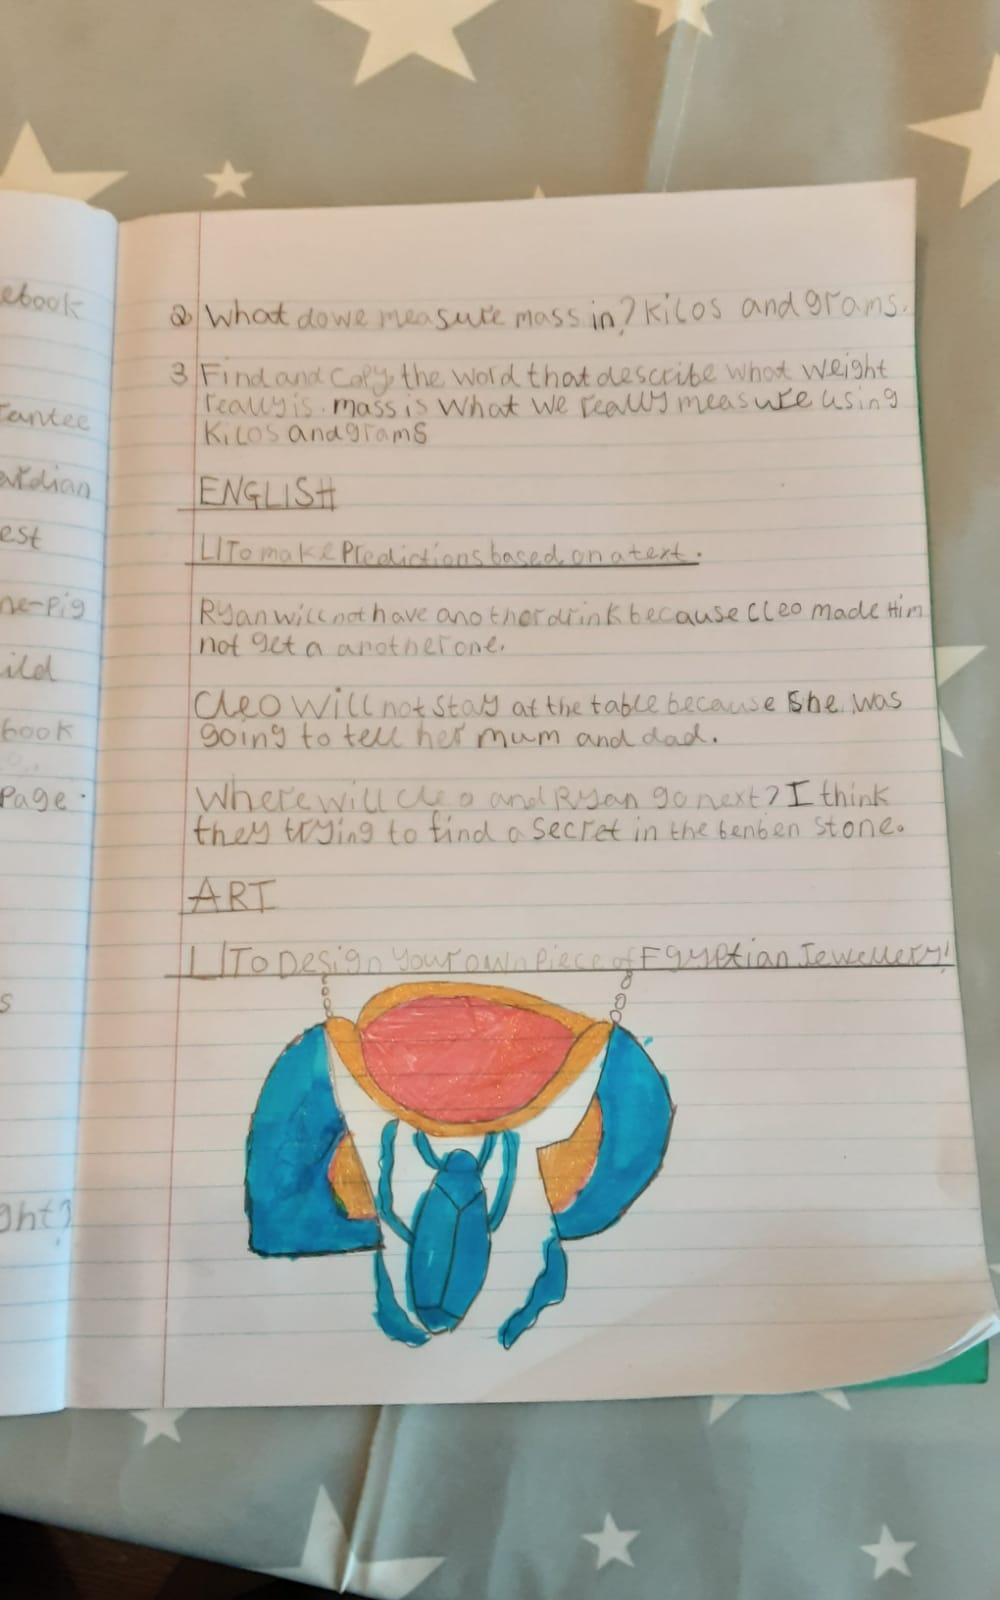 ebook
tantee
ardian
est
ne-pig
ild
book
Page.
s
ght?
2 What do we measure mass in? Kilos and grams.
3 Find and copy, the word that describe what weight
really is. mass is what we really measure using
Kilos and grams
ENGLISH
LI To make Predictions based on a text.
Ryan will not have another drink because Cleo made Him
not get a another one.
Cleo will not stay at the table because She was
going to tell her mum and dad.
Where will Cleo and Ryan go next? I think
they trying to find a secret in the benben stone.
ART
LI To Design Your own Piece of Egyptian Jewellery!